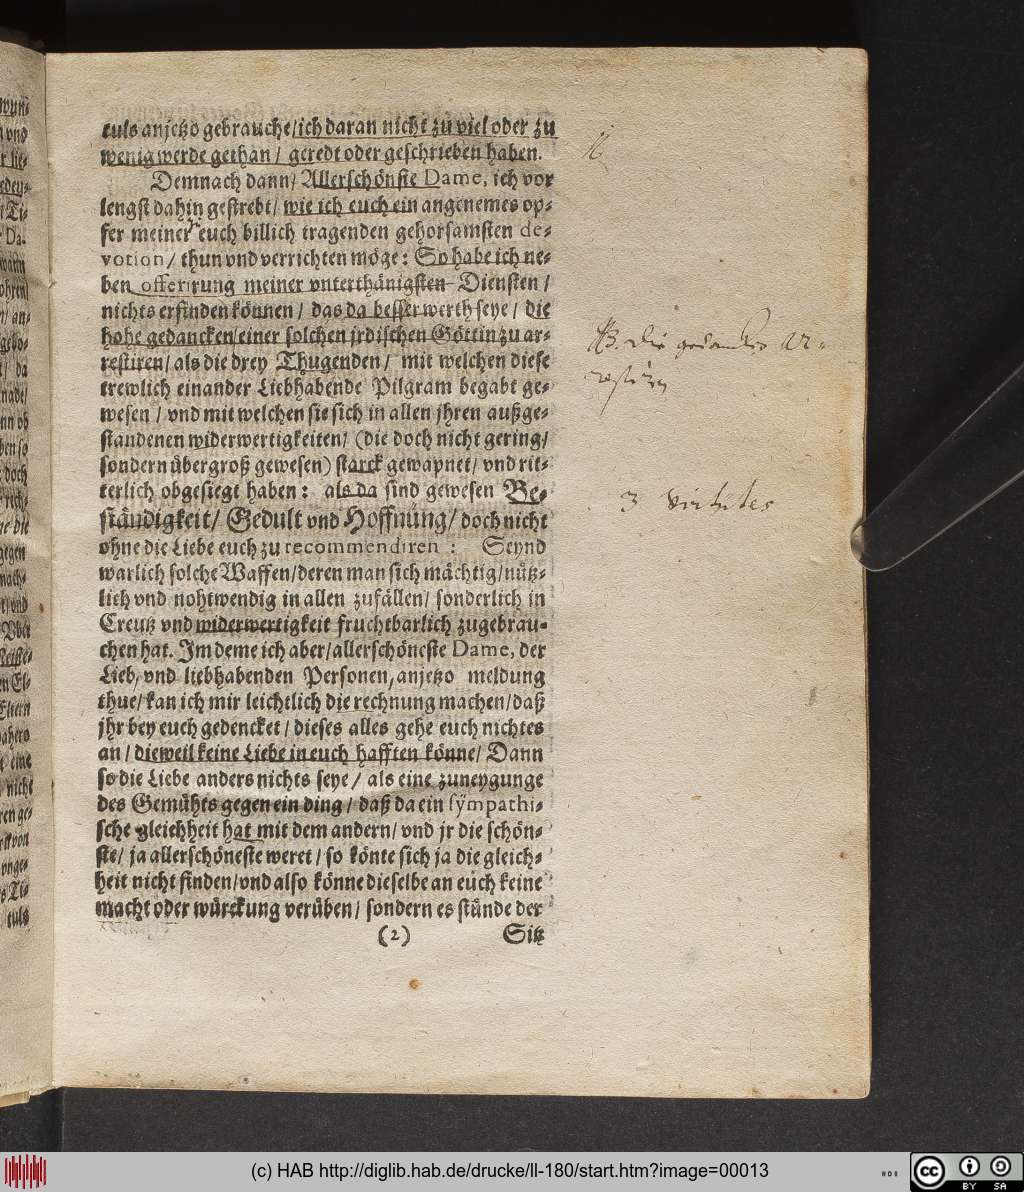 tuls anjetzo gebrauche/ich daran nicht zu viel oder zu
wenig werde gethan/ geredt oder geschrieben haben.
Demnach dann/ Allerschönste Dame, ich vor
lengst dahin gestrebt/ wie ich euch ein angenemes op-
fer meiner euch billich tragenden gehorsamsten de-
votion/ thun vnd verrichten möge: So habe ich ne-
ben offerirung meiner vnterthänigsten Diensten/
nichts erfinden können/ das da besser werth seye/ die
hohe gedancken/einer solchen jrdischen Göttin zu ar-
restiren/als die drey Thugenden/ mit welchen diese
trewlich einander Liebhabende Pilgram begabt ge-
wesen/ vnd mit welchen sie sich in allen jhren außge-
standenen widerwertigkeiten/ (die doch nicht gering/
sondern übergroß gewesen) starck gewapnet/ vnd rit-
terlich obgesiegt haben: als da sind gewesen Be-
ständigkeit/ Gedult vnd Hoffnung/ doch nicht
ohne die Liebe euch zu recommendiren: Seynd
warlich solche Waffen/deren man sich mächtig/nütz-
lich vnd nohtwendig in allen zufällen/ sonderlich in
Creutz vnd widerwertigkeit fruchtbarlich zugebrau-
chen hat. Im deme ich aber/allerschöneste Dame, der
Lieb, vnd liebhabenden Personen, anjetzo meldung
thue/kan ich mir leichtlich die rechnung machen/daß
jhr bey euch gedencket/ dieses alles gehe euch nichtes
an/ dieweil keine Liebe in euch hafften könne/ Dann
so die Liebe anders nichts seye/ als eine zuneygunge
des Gemühts gegen ein ding/ daß da ein sympathi-
sche gleichheit hat mit dem andern/ vnd jr die schön-
ste/ ja allerschöneste weret/ so könte sich ja die gleich-
heit nicht finden/vnd also könne dieselbe an euch keine
macht oder würckung verüben/ sondern es stünde der
(2) Sitz
NB. die gedancken Ar-
restirn
3 virtutes
(c) HAB http://diglib.hab.de/drucke/ll-180/start.htm?image=00013
cc BY SA